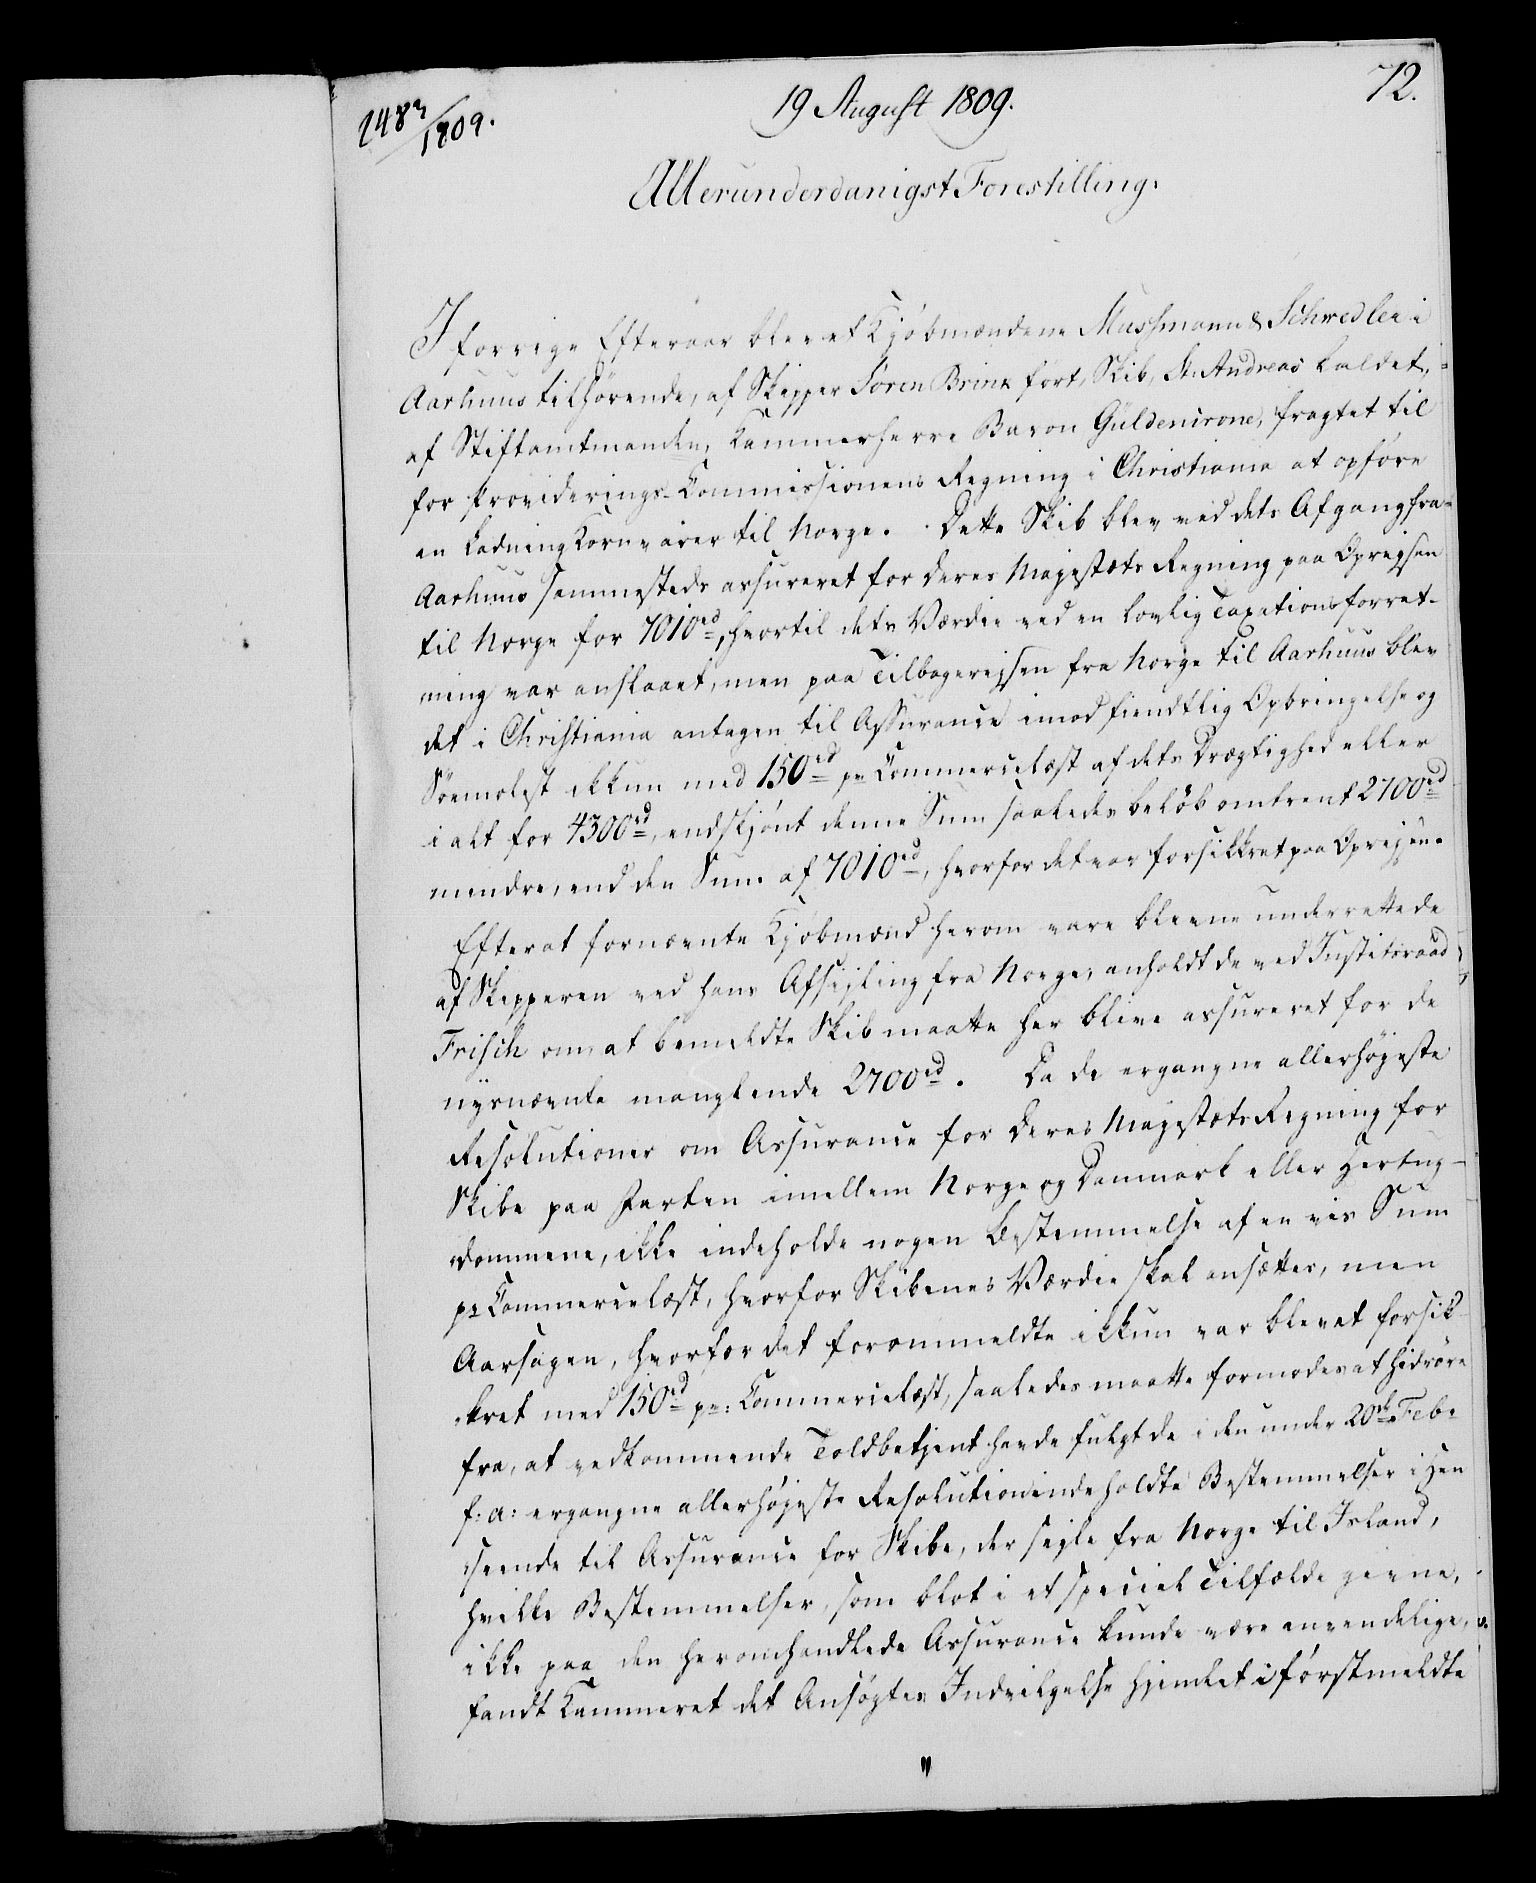 72.
19 August 1809.
1809.
Allerunderdanigst Forestilling.
I forrige Efteraar blev et Kjøbmændene Mussmann & Schwedler i
Aarhuus tilhørende, af Skipper Søren Brinx ført, Skib, St. Andreas kaldet,
af Stiftamtmanden, Kammerherre Baron Güldencrone, fragtet til
for Providerings-Commissionens Regning i Christiania at opføre
en Ladning Kornvarer til Norge. Dette Skib blev ved dets Afgang fra
Aarhuus sammesteds assureret for Deres Majestæts Regning paa Oprejsen
til Norge for 7010 rd, hvortil dets Værdie ved en lovlig Taxationsforret-
ning var anslaaet, men paa Tilbagerejsen fra Norge til Aarhuus blev
det i Christiania antagen til Assurance imod fiendtlig Opbringelse og
Søemolest ikkun med 150 rd pr Commercelæst af dets Drægtighed eller
i alt for 4300 rd, endskjønt denne Sum saaledes beløb omtrent 2700 rd
mindre, end den Sum af 7010 rd, hvorfor det var forsikkret paa Oprejsen.
Efterat fornævnte Kjøbmænd herom vare blevne underrettede
af Skipperen ved hans Afsejling fra Norge, anholdt de ved Justitsraad
Frisch om, at bemeldte Skib maatte her blive assureret for de
nysnævnte manglende 2700 rd. Da de ergangne allerhøjeste
Resolutioner om Assurance for Deres Majestæts Regning for
Skibe paa Farten imellem Norge og Danmark eller Hertug-
dommene, ikke indeholde nogen Bestemmelse af en vis Sum
pr Commercelæst, hvorfor Skibenes Værdie skal ansættes, men
Aarsagen, hvorfor det forommeldte ikkun var blevet forsik-
kret med 150 rd pr: Commercelæst, saaledes maatte formodes at hidrøre
fra, at vedkommende Toldbetjent havde fulgt de i den under 20de Febr
f: a: ergangne allerhøjeste Resolution indeholdte Bestemmelser i Hen
seende til Assurance for Skibe, der sejle fra Norge til Island,
hvilke Bestemmelser, som blot i et speciel Tilfælde givne,
ikke paa den heromhandlede Assurance kunde være anvendelige,
fandt Kammeret det Ansøgtes Indvilgelse hjemlet i førstmeldte